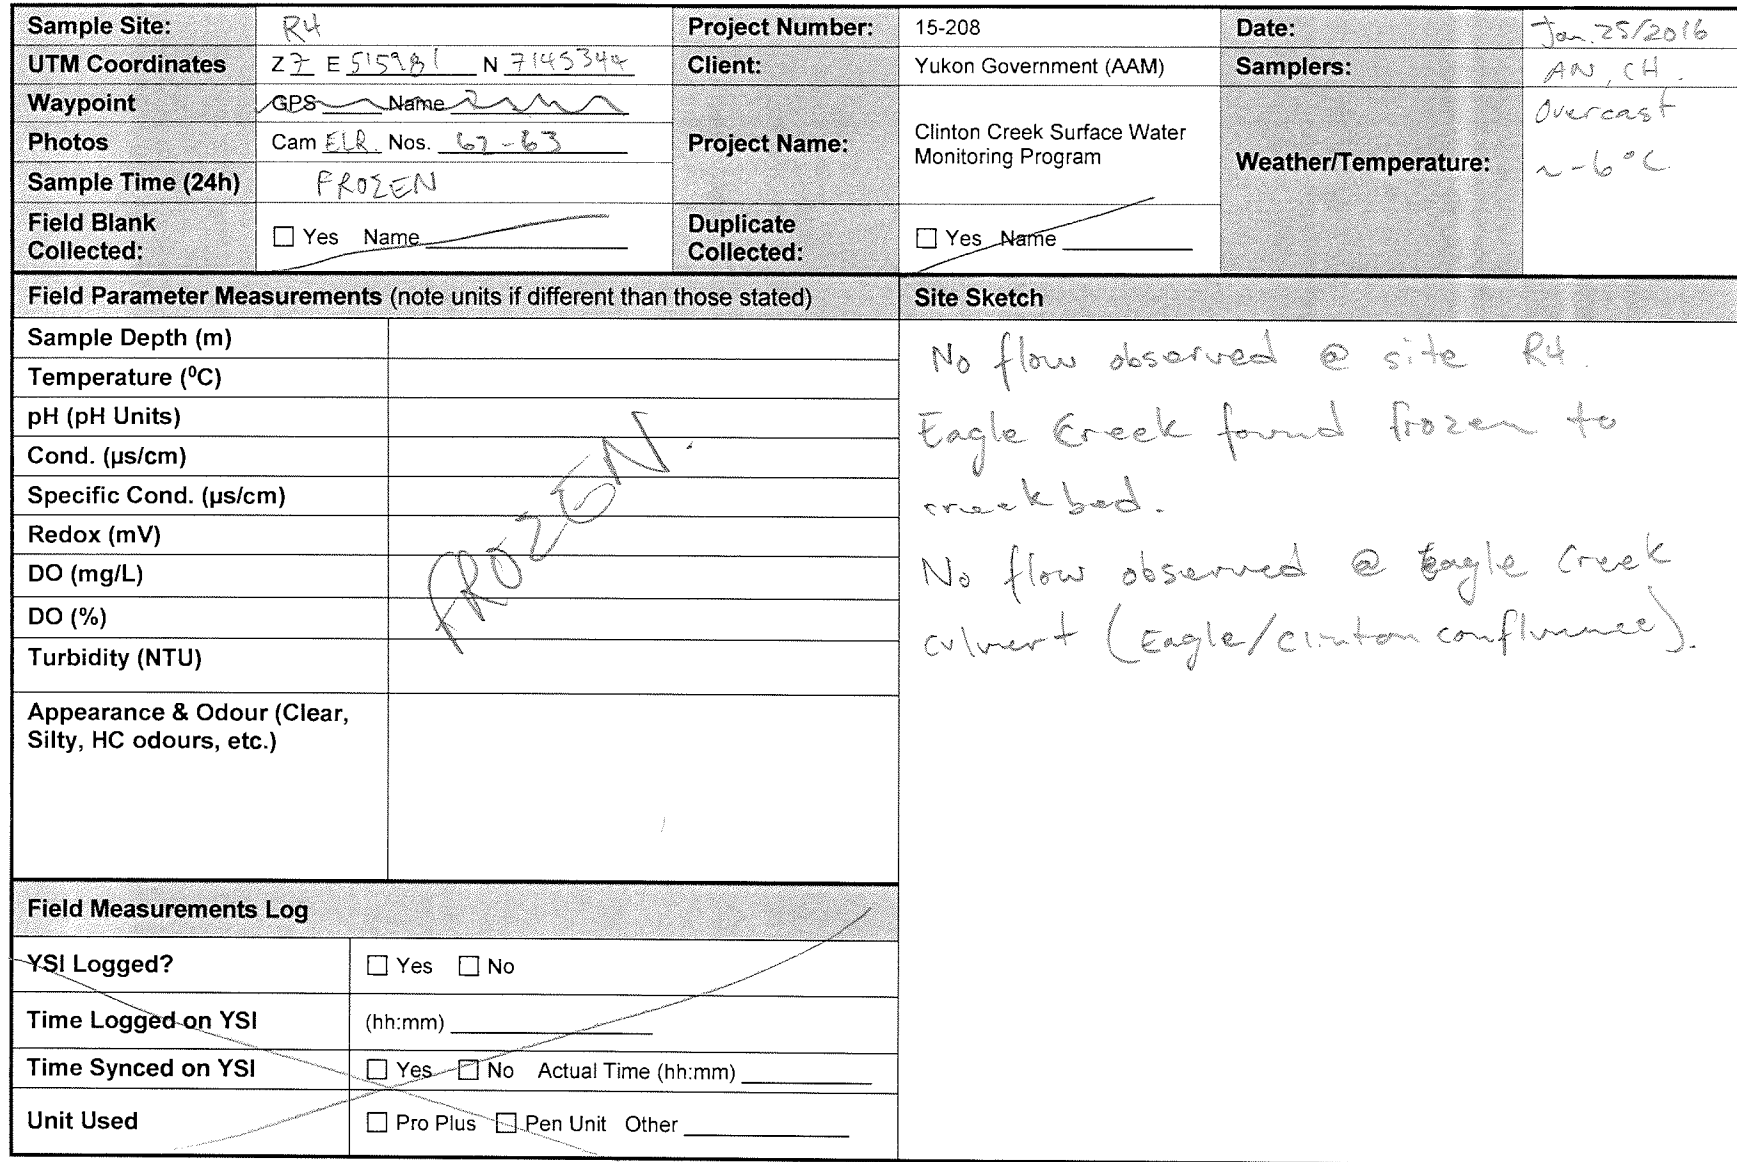 Sample Site: R4 Project Number: 15-208 Date: Jan. 25/2016
UTM Coordinates Z 7 E 515981 N 7145344 Client: Yukon Government (AAM) Samplers: AN, CH.
Waypoint GPS Name
Photos Cam ELR. Nos. 62-63 Project Name: Clinton Creek Surface Water
Monitoring Program
Weather/Temperature: Overcast
~-6°C
Sample Time (24h) FROZEN
Field Blank
Collected: ☐ Yes Name
Duplicate
Collected: ☐ Yes Name
Field Parameter Measurements (note units if different than those stated)
Sample Depth (m)
Temperature (⁰C)
pH (pH Units)
Cond. (µs/cm)
Specific Cond. (µs/cm)
Redox (mV)
DO (mg/L)
DO (%)
Turbidity (NTU)
FROZEN.
Appearance & Odour (Clear,
Silty, HC odours, etc.)
Field Measurements Log
YSI Logged? ☐ Yes ☐ No
Time Logged on YSI (hh:mm)
Time Synced on YSI ☐ Yes ☐ No Actual Time (hh:mm)
Unit Used ☐ Pro Plus ☐ Pen Unit Other
Site Sketch
No flow observed @ site R4.
Eagle Creek found frozen to
creek bed.
No flow observed @ Eagle Creek
culvert (Eagle/Clinton confluence).